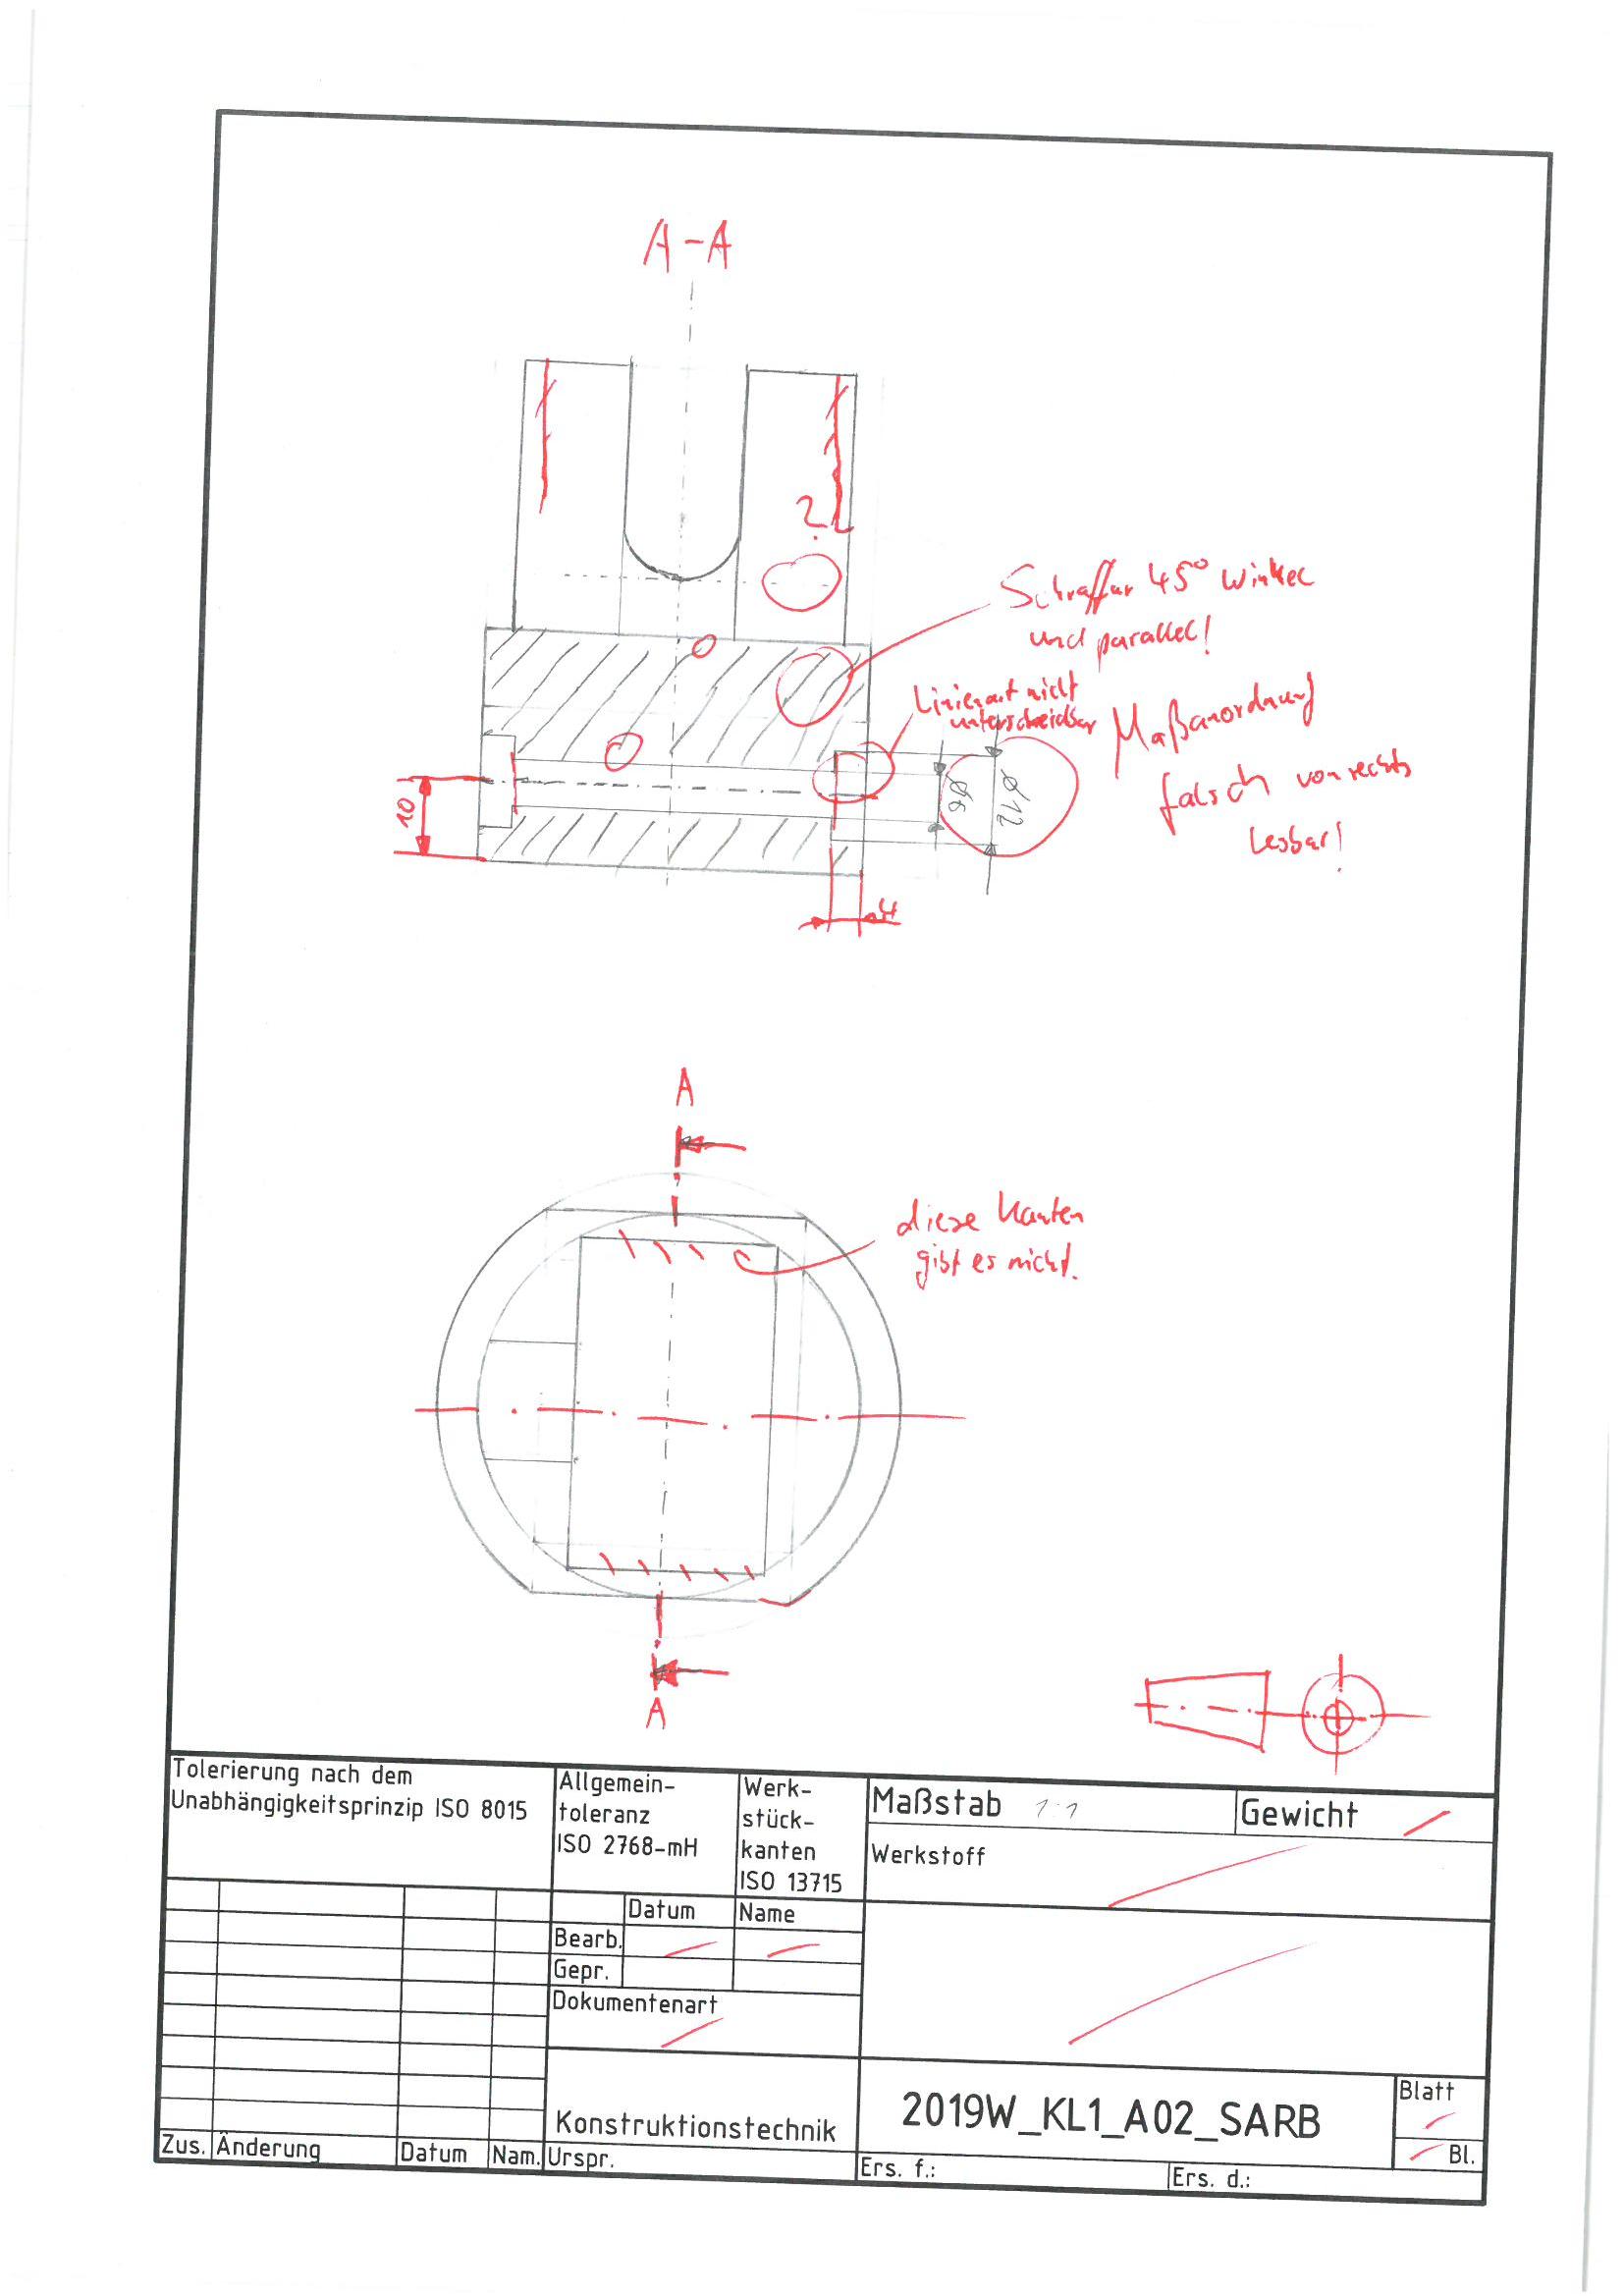 A-A
?
Schraffur 45° Winkel
und parallel!
Linienart nicht
unterscheidbar
Maßanordnung
falsch von rechts
lesbar!
10
ø6
ø12
4
A
diese Kanten
gibt es nicht.
A
Tolerierung nach dem
Unabhängigkeitsprinzip ISO 8015
Allgemein-
toleranz
ISO 2768-mH
Werk-
stück-
kanten
ISO 13715
Maßstab 1:1
Gewicht
Werkstoff
Datum
Name
Bearb.
Gepr.
Dokumentenart
Konstruktionstechnik
2019W_KL1_A02_SARB
Blatt
Bl.
Zus.
Änderung
Datum
Nam.
Urspr.
Ers. f.:
Ers. d.: